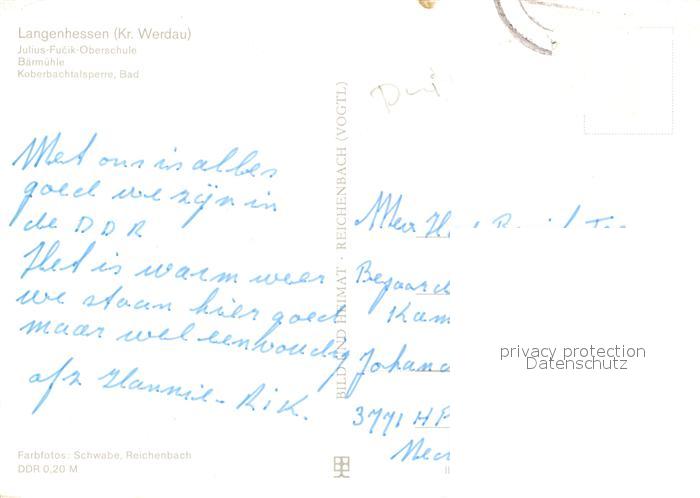 Langenhessen (Kr. Werdau)
Julius-Fučik-Oberschule
Bärmühle
Koberbachtalsperre, Bad
Met ons is alles
goed we zijn in
de DDR
Het is warm weer
we staan hier goed
maar wel eenvoudig
afz Hannie - Rik.
Farbfotos: Schwabe, Reichenbach
DDR 0,20 M
BILD UND HEIMAT · REICHENBACH (VOGTL)
Mevr
Bejaard
Kam
Johana
3771 HP
privacy protection
Datenschutz